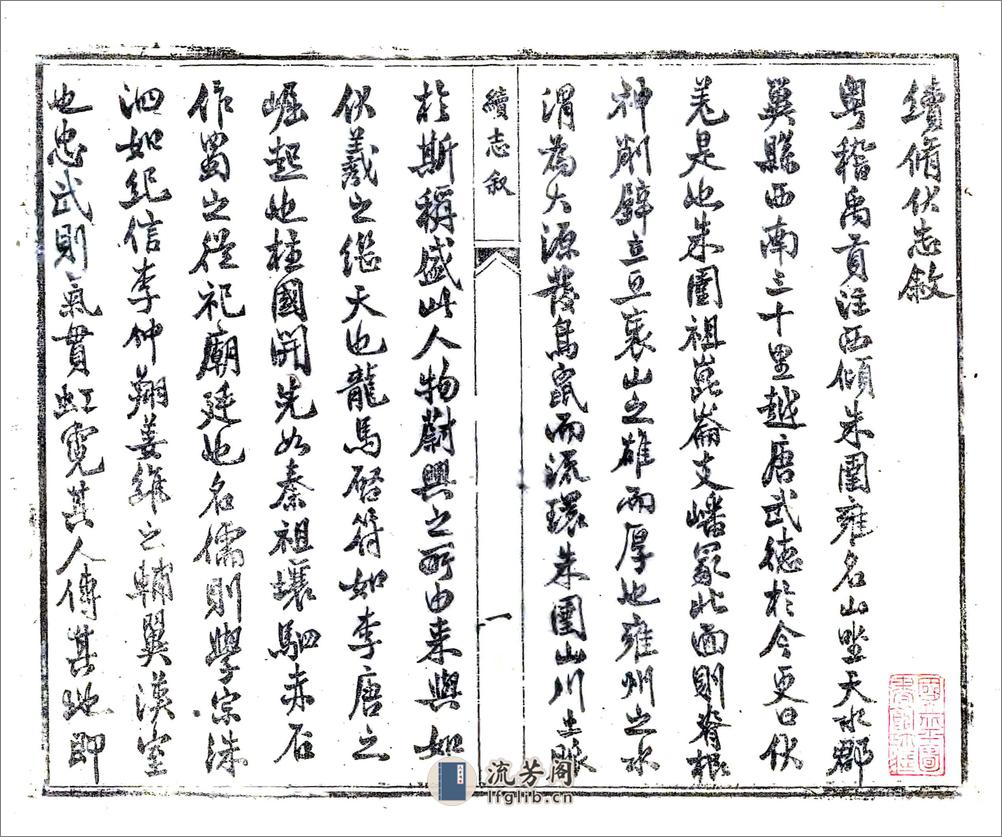 續脩伏志敘
粤稽禹貢注西傾朱圉雍名山坐天水郡
冀縣西南三十里越唐武德於今更曰伏
羌是地朱圉祖崑崙支嶓冢北面則脊根
神削壁立亘衰山之雄而厚也雍州之水
渭為大源發鳥鼠而流環朱圉山川土脈
續志敘
一
於斯稱盛此人物蔚興之所由来與如
伏羲之繼天也龍馬啓符如李唐之
崛起也柱國開先如秦祖壤駟赤石
作蜀之從祀廟廷也名儒則學宗洙
泗如紀信李仲翔姜維之輔翼漢室
也忠武則氣貫虹霓其人傳其地即
流芳阁
lfglib.cn